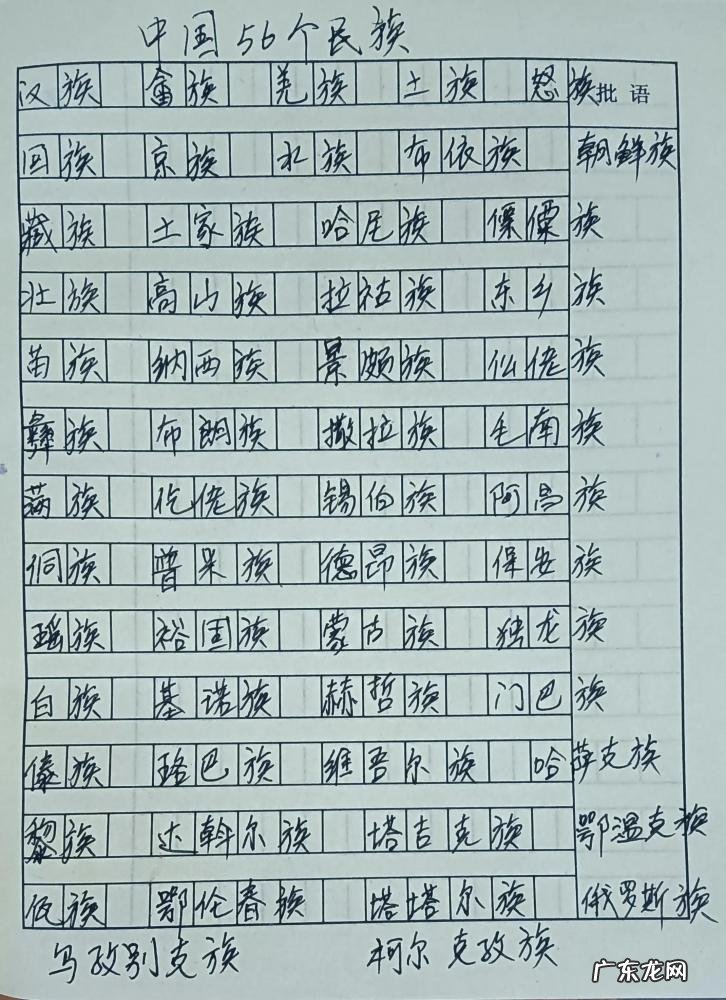 中国56个民族
汉族 畲族 羌族 土族 怒族 批语
回族 京族 水族 布依族 朝鲜族
藏族 土家族 哈尼族 傈僳族
壮族 高山族 拉祜族 东乡族
苗族 纳西族 景颇族 仫佬族
彝族 布朗族 撒拉族 毛南族
满族 仡佬族 锡伯族 阿昌族
侗族 普米族 德昂族 保安族
瑶族 裕固族 蒙古族 独龙族
白族 基诺族 赫哲族 门巴族
傣族 珞巴族 维吾尔族 哈萨克族
黎族 达斡尔族 塔吉克族 鄂温克族
佤族 鄂伦春族 塔塔尔族 俄罗斯族
乌孜别克族 柯尔克孜族
广东龙网